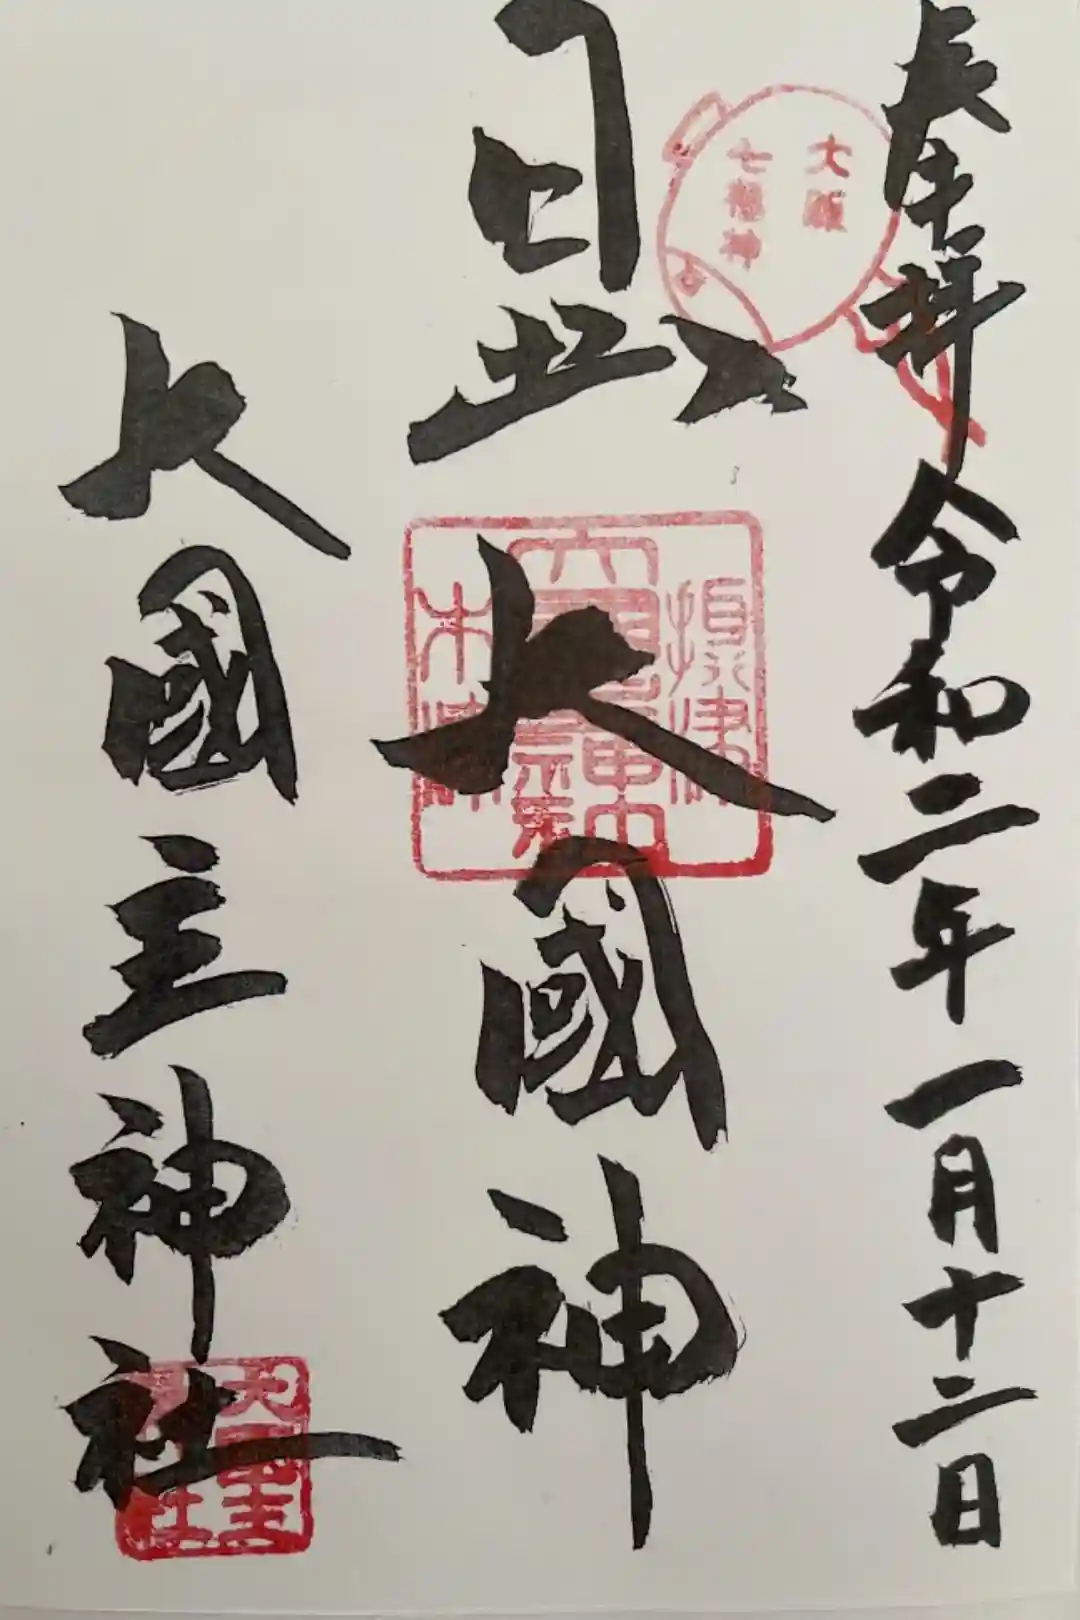 奉拝 令和二年一月十二日
大阪
七福神
日出大國神
摂津
木津
大國主神社